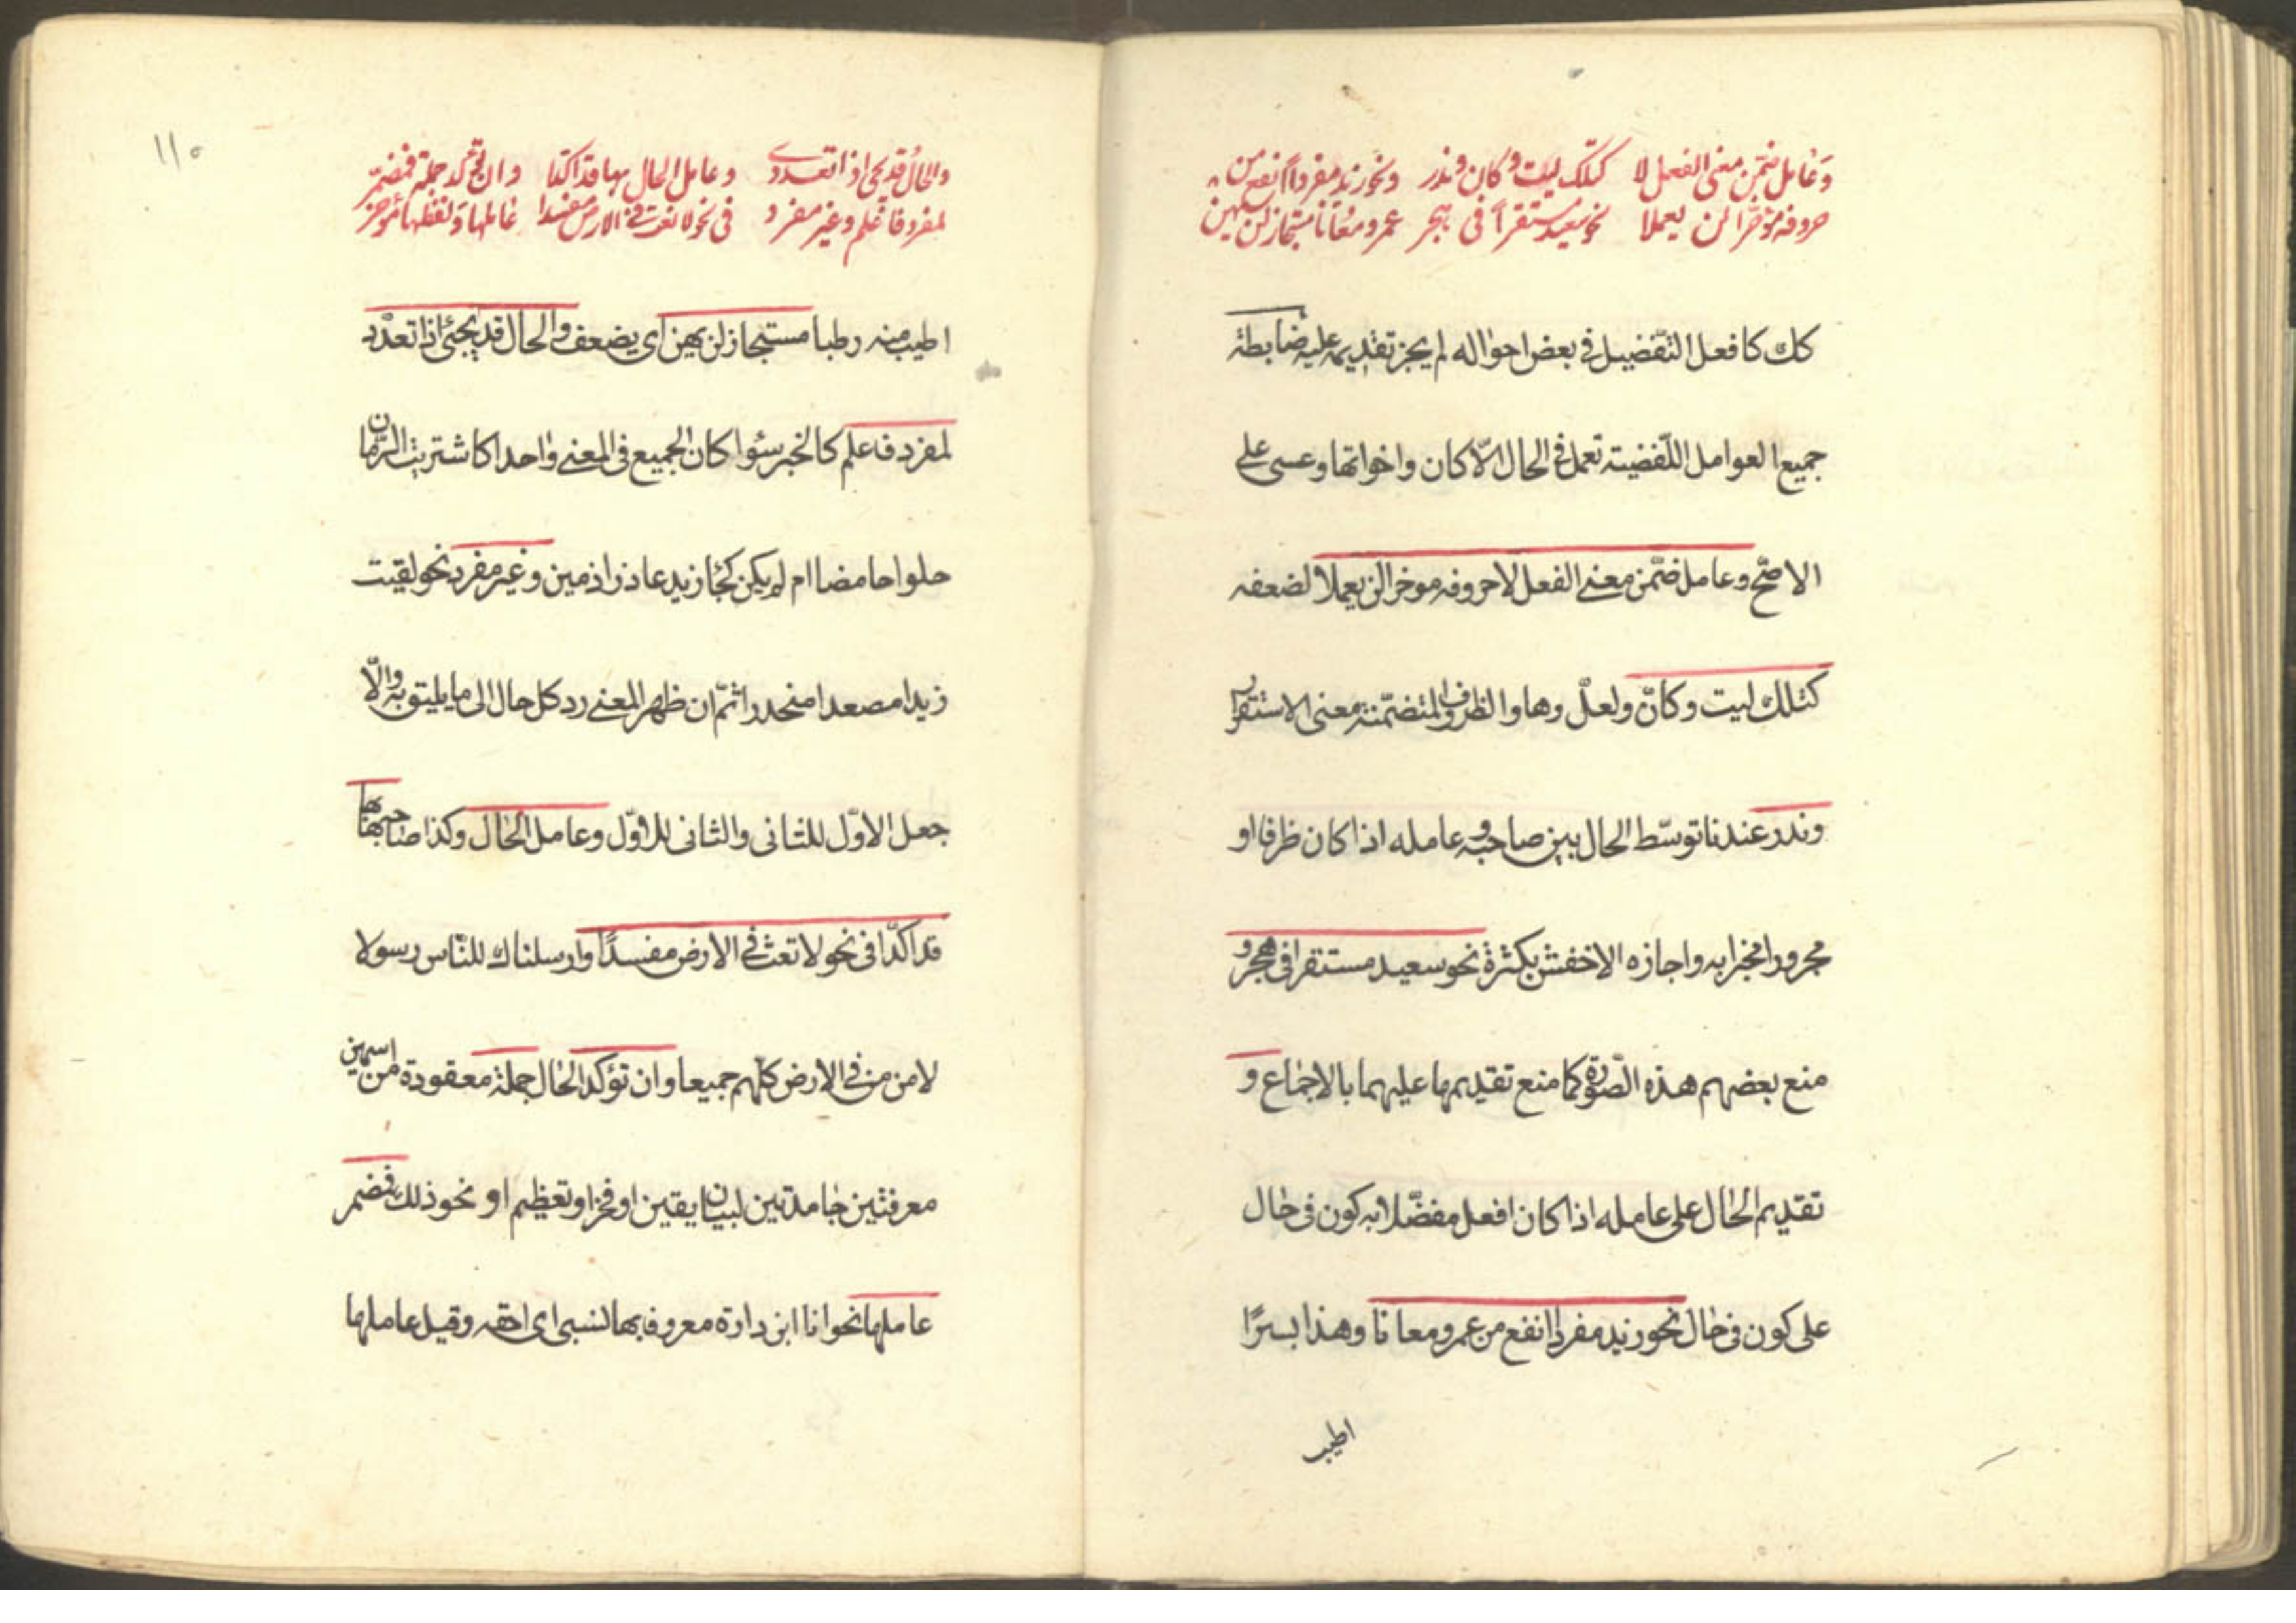 وعامل ضمّن معنى الفعل لا كتلك ليت وكانّ وندر ونحو زيد مفرداً انفع من
حروفه مؤخّراً لن يعملا نحو سعيد مستقراً فى هجر عمرو معاناً مستجاز لن يهن
كك كافعل التّفضيل فى بعض احواله لم يجز تقديمه عليه ضابطة
جميع العوامل اللّفضية تعمل فى الحال الاّ كان واخواتها وعسى على
الاصحّ وعامل ضمّن معنى الفعل لا حروفه موخرا لن يعملا لضعفه
كتلك ليت وكانّ ولعلّ وها والظروف المتضمّنة معنى الاستقرار
وندر عندنا توسّط الحال بين صاحبه وعامله اذا كان ظرفا او
مجرورا مخبرا به واجازه الاخفش بكثرة نحو سعيد مستقرا فى هجر و
منع بعضهم هذه الصّورة كما منع تقديمها عليهما بالاجماع و
تقديم الحال على عامله اذا كان افعل مفضّلا به كون فى حال
على كون فى حال نحو زيد مفردا انفع من عمرو معانا وهذا بسرًا
اطيب
١١٥
والحالُ قد يجئ اذا تعدد وعامل الحال بها قد اكّدا وان تؤكد جملة فمضمر
لمفرد فاعلم وغير مفرد فى نحو لا تعث فى الارض مفسدا عاملها ولفظها مؤخر
اطيب منه رطبا مستجاز لن يهن اى يضعف والحال قد يجئ اذا تعدّد
لمفرد فاعلم كالخبر سؤا كان الجميع فى المعنى واحدا كاشتريت الرّمان
حلوا حامضا ام لم يكن كجاء زيد عاذرا ذمين وغير مفرد نحو لقيت
زيدا مصعدا منحدرا ثمّ ان ظهر المعنى رد كل حال الى ما يليق به والّا
جعل الاوّل للثانى والثانى للاوّل وعامل الحال وكذا صاحبها بها
قد اكّدا فى نحو لا تعث فى الارض مفسدًا وارسلناك للنّاس رسولا
لامن من فى الارض كلّهم جميعا وان تؤكد الحال جملة معقودة من اسمين
معرفتين جامدتين لبيان يقين او فخر او تعظيم او نحو ذلك فمضمر
عاملها نحو انا ابن دارة معروفا بها نسبى اى احقه وقيل عاملها